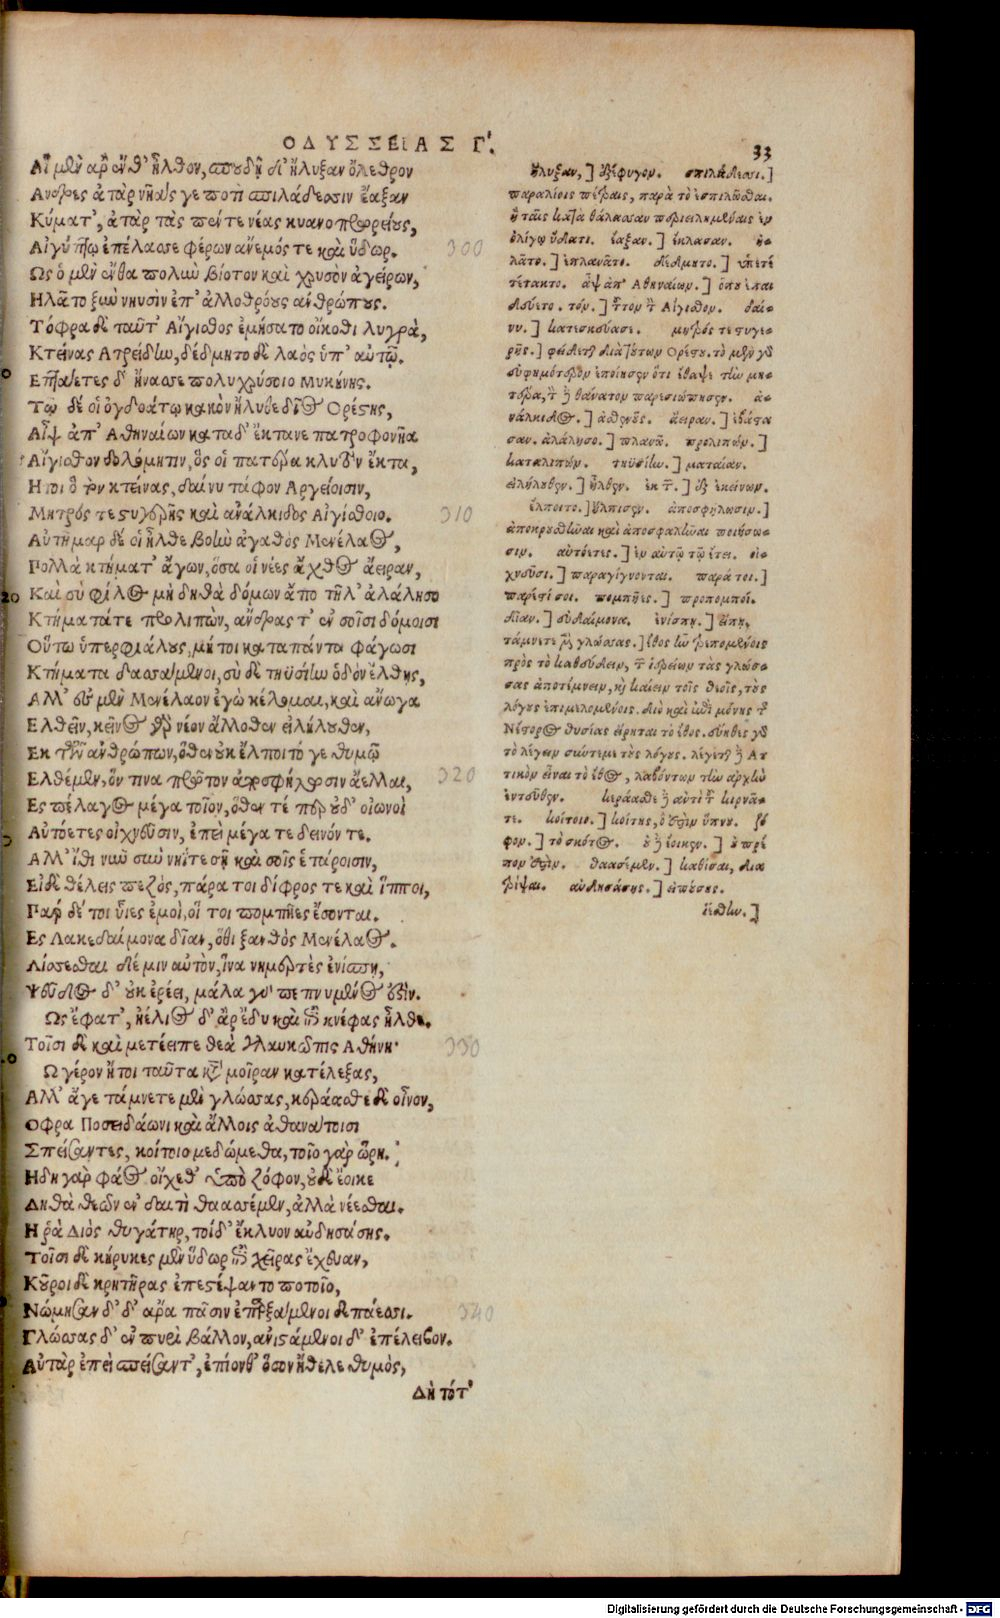 ΟΔΥΣΣΕΙΑΣ Γ'.
33
Αἳ μὲν ἂρ ἔνθ' ἦλθον, σπουδῇ δ' ἤλυξαν ὄλεθρον
Ανδρες ἀτὰρ νῆάς γε ποτὶ σπιλάδεσσιν ἔαξαν
Κύματ', ἀτὰρ τὰς πέντε νέας κυανοπρῳρείους,
Αἰγύπτῳ ἐπέλασσε φέρων ἄνεμός τε καὶ ὕδωρ.
300
Ως ὁ μὲν ἔνθα πολὺν βίοτον καὶ χρυσὸν ἀγείρων,
Ηλᾶτο ξὺν νηυσὶν ἐπ' ἀλλοθρόους ἀνθρώπους.
Τόφρα δὲ ταῦτ' Αἴγισθος ἐμήσατο οἴκοθι λυγρὰ,
Κτείνας Ατρείδην, δέδμητο δὲ λαὸς ὑπ' αὐτῷ.
Επτάετες δ' ἤνασσε πολυχρύσοιο Μυκήνης.
Τῷ δέ οἱ ὀγδοάτῳ κακὸν ἤλυθε δῖος Ορέστης,
Αἶψ ἀπ' Αθηναίων κατὰ δ' ἔκτανε πατροφονῆα
Αἴγισθον δολόμητιν, ὅς οἱ πατέρα κλυτὸν ἔκτα,
Ητοι ὁ τὸν κτείνας, δαίνυ τάφον Αργείοισιν,
Μητρός τε στυγερῆς καὶ ἀνάλκιδος Αἰγίσθοιο.
310
Αὐτῆμαρ δέ οἱ ἦλθε βοὴν ἀγαθὸς Μενέλαος,
Πολλὰ κτήματ' ἄγων, ὅσα οἱ νέες ἄχθος ἄειραν,
Καὶ σὺ φίλος μὴ δηθὰ δόμων ἄπο τῆλ' ἀλάλησο
20
Κτήματά τε προλιπὼν, ἄνδρας τ' ἐν σοῖσι δόμοισι
Οὕτω ὑπερφιάλους, μή τοι κατὰ πάντα φάγωσι
Κτήματα δασσάμενοι, σὺ δὲ τηϋσίην ὁδὸν ἔλθης,
Αλλ' ἐς μὲν Μενέλαον ἐγὼ κέλομαι, καὶ ἄνωγα
Ελθεῖν, κεῖνος γὰρ νέον ἄλλοθεν εἰλήλουθεν,
Εκ τῶν ἀνθρώπων, ὅθεν οὐκ ἔλποιτό γε θυμῷ
Ελθέμεν, ὅν τινα πρῶτον ἀποσφήλωσιν ἄελλαι,
320
Ες πέλαγος μέγα τοῖον, ὅθεν τέ περ οὐδ' οἰωνοὶ
Αὐτόετες οἰχνεῦσιν, ἐπεὶ μέγα τε δεινόν τε.
Αλλ' ἴθι νῦν σὺν νηΐ τε σῇ καὶ σοῖς ἑτάροισιν,
Εἰ δὲ θέλεις πεζὸς, πάρα τοι δίφρος τε καὶ ἵπποι,
Παρ δέ τοι υἷες ἐμοὶ, οἵ τοι πομπῆες ἔσονται.
Ες Λακεδαίμονα δῖαν, ὅθι ξανθὸς Μενέλαος.
Λίσσεσθαι δέ μιν αὐτὸν, ἵνα νημερτὲς ἐνίσπῃ,
Ψεῦδος δ' οὐκ ἐρέει, μάλα γὰρ πεπνυμένος ἐστίν.
Ως ἔφατ', ἠέλιος δ' ἂρ ἔδυ καὶ ἐπὶ κνέφας ἦλθε.
Τοῖσι δὲ καὶ μετέειπε θεὰ γλαυκῶπις Αθήνη·
330
Ω γέρον ἤτοι ταῦτα κατὰ μοῖραν κατέλεξας,
Αλλ' ἄγε τάμνετε μὲν γλώσσας, κεράασθε δὲ οἶνον,
Οφρα Ποσειδάωνι καὶ ἄλλοις ἀθανάτοισι
Σπείσαντες, κοίτοιο μεδώμεθα, τοῖο γὰρ ὥρη.
Ηδη γὰρ φάος οἴχεθ' ὑπὸ ζόφον, οὐδὲ ἔοικε
Δηθὰ θεῶν ἐν δαιτὶ θαασσέμεν, ἀλλὰ νέεσθαι.
Η ῥὰ Διὸς θυγάτηρ, τοὶ δ' ἔκλυον αὐδησάσης.
Τοῖσι δὲ κήρυκες μὲν ὕδωρ ἐπὶ χεῖρας ἔχευαν,
Κοῦροι δὲ κρητῆρας ἐπεστέψαντο ποτοῖο,
Νώμησαν δ' δ' ἄρα πᾶσιν ἐπαρξάμενοι δεπάεσσι.
340
Γλώσσας δ' ἐν πυρὶ βάλλον, ἀνιστάμενοι δ' ἐπέλειβον.
Αὐτὰρ ἐπεὶ σπεῖσαντ', ἐπιόνθ' ὅσον ἤθελε θυμὸς,
Δὴ τότ'
ἤλυξαν,] ἐξέφυγον. σπιλάδεσσι.]
παραλίοις πέτραις, παρὰ τὸ ἐσπιλῶσθαι.
ἢ ταῖς κατὰ θάλασσαν περιειλημμέναις ἐν
ὀλίγῳ ὕδατι. ἔαξαν.] ἔκλασαν. ἠ-
λᾶτο.] ἐπλανᾶτο. δέδμητο.] ὑπετέ
τέτακτο. ἂψ ἀπ' Αθηναίων.] ὅπου ἐπαι
δεύετο. τόν.] τοῦτον τὸν Αἴγισθον. δαί-
νυ.] κατεσκεύασε. μητρός τε στυγε-
ρῆς.] φείδεται διὰ τούτων Ορέστου. τὸ μὲν γὰρ
εὐφημότερον ἐποίησεν ὅτι ἔθαψε τὴν μη-
τέρα, τὸν δὲ θάνατον παρεσιώπησεν. ἀ-
νάλκιδος.] ἀσθενοῦς. ἄειραν.] ἐβάστα
σαν. ἀλάλησο.] πλανῶ. προλιπών.]
καταλιπών. τηϋσίην.] ματαίαν.
εἰλήλουθεν.] ἦλθεν. ἐκ τῶν.] ἐξ ἐκείνων.
ἔλποιτο.] ἤλπισεν. ἀποσφήλωσιν.]
ἀποκρουσθῶναι καὶ ἀποσφαλῶναι ποιήσω-
σιν. αὐτόετες.] ἐν αὐτῷ τῷ ἔτει. οἰ-
χνεῦσι.] παραγίγνονται. παρά τοι.]
πάρεστί σοι. πομπῆες.] προπομποί.
δῖαν.] εὐδαίμονα. ἐνίσπῃ.] εἴπῃ.
τάμνετε μὲν γλώσσας.] ἔθος ἦν τρεπομένοις
πρὸς τὸ καθεύδειν, τῶν ἱερείων τὰς γλώσ-
σας ἀποτέμνειν, καὶ καίειν τοῖς θεοῖς, τοὺς
λόγους ἐπιμελομένοις. διὸ καὶ ἐπὶ μόνης τῆς
Νέστορος θυσίας εἴρηται τὸ ἔθος. σύνηθες γὰρ
τὸ λέγειν σύντεμε τοὺς λόγους. λέγεται δὲ Ατ
τικὸν εἶναι τὸ ἔθος, λαβόντων τὴν ἀρχὴν
ἐντεῦθεν. κεράασθε δὲ αὐτὶ τοῦ κιρνᾶ-
τε. κοίτοιο.] κοίτης, ὅ ἐστιν ὕπνου. ζό
φον.] τὸ σκότος. οὐδὲ ἔοικεν.] οὐ πρέ
πον ἐστίν. θαασέμεν.] καθίσαι, δια
τρίψαι. αὐδησάσης.] εἰπούσης.
ἔχθω.]
Digitalisierung gefördert durch die Deutsche Forschungsgemeinschaft - DFG